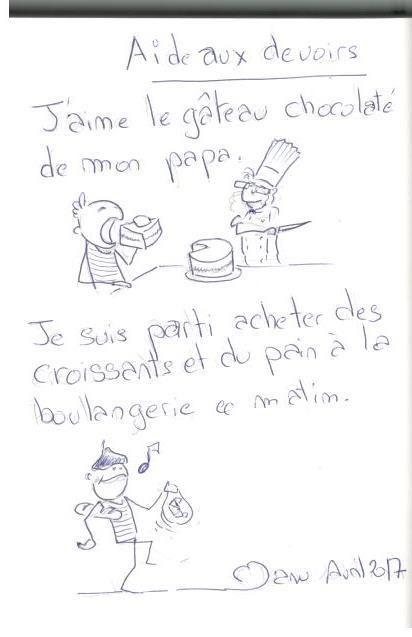 Aide aux devoirs
J'aime le gâteau chocolaté
de mon papa.
Je suis parti acheter des
croissants et du pain à la
boulangerie ce matin.
$
Avril 2017